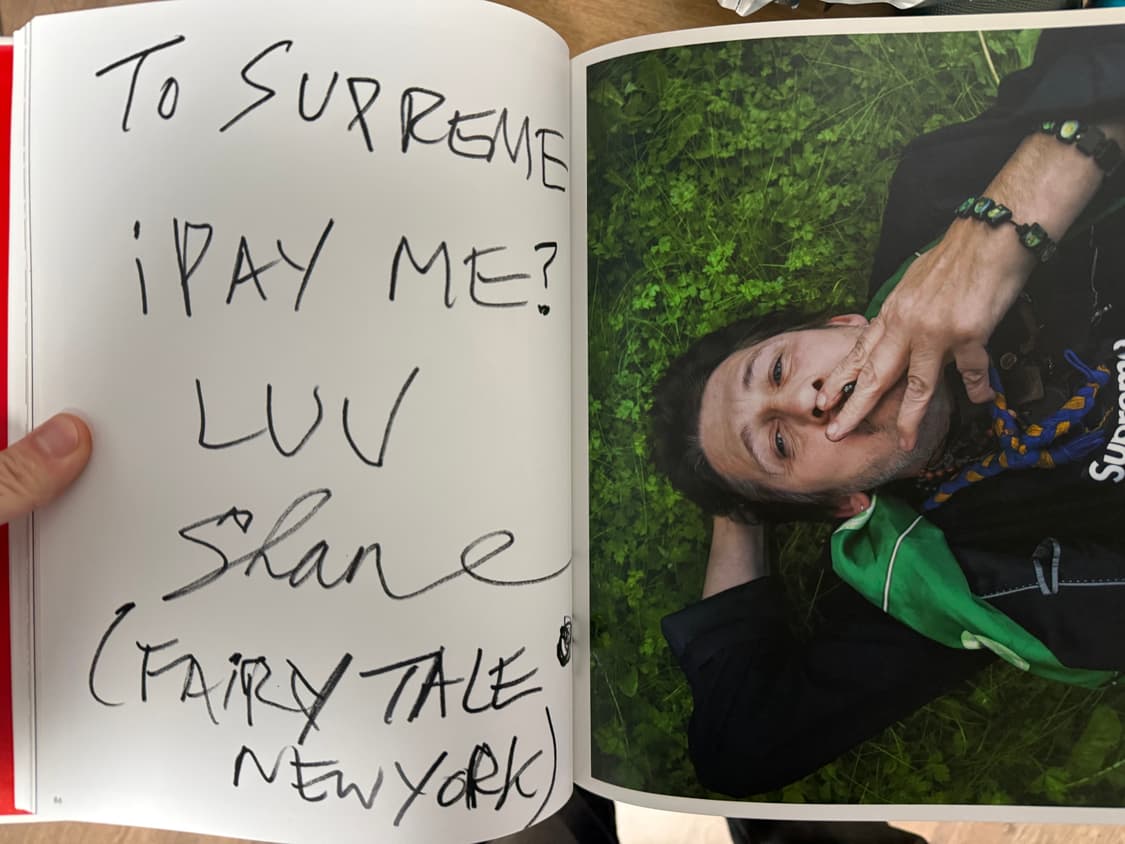 To SUPREME
iPAY ME?
LUV
Shane
(FAiRY TALE
NEW YORK)
Supreme